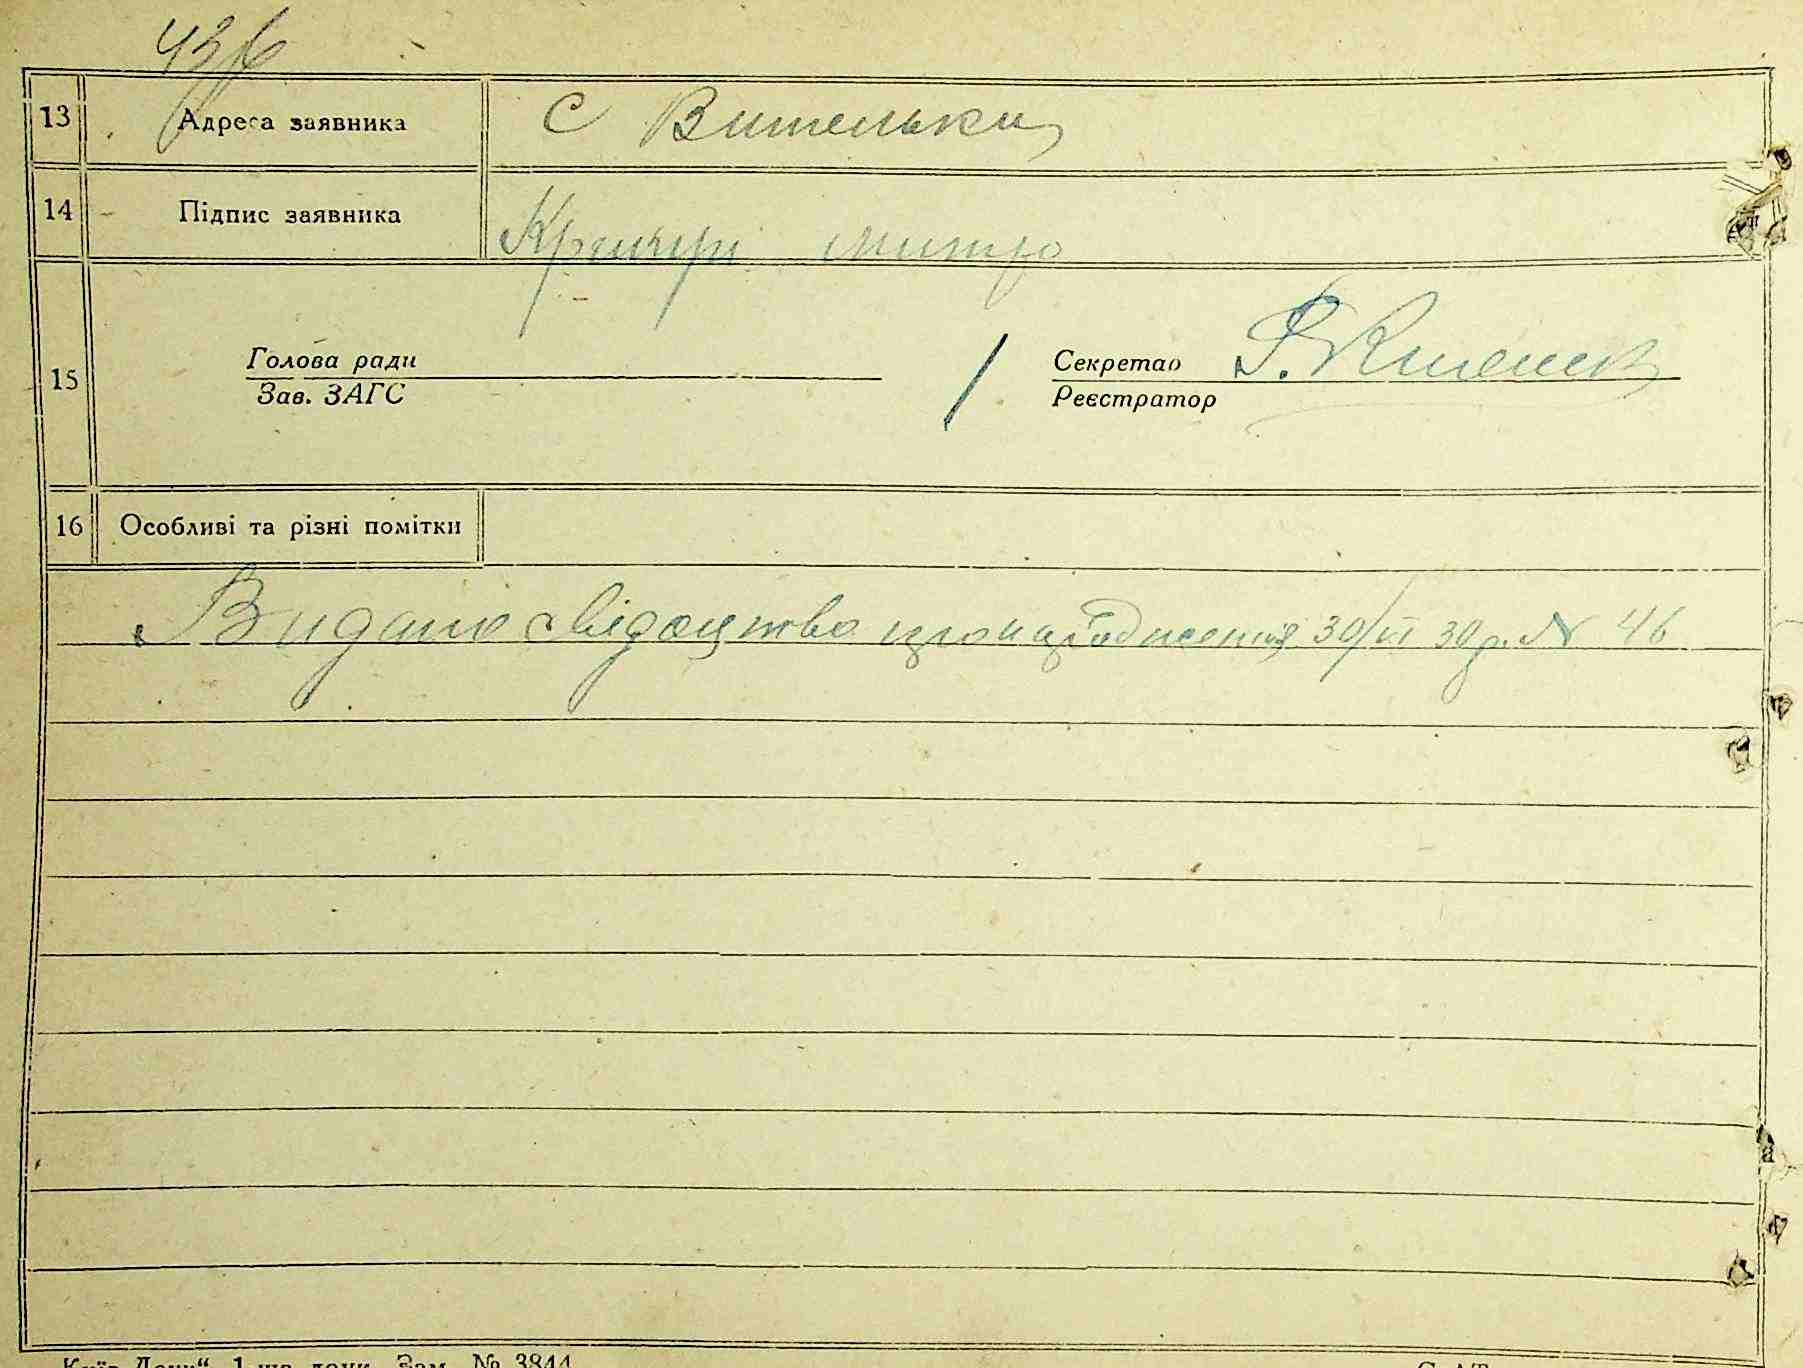 43
13 Адреса заявника С Вительки
14 Підпис заявника митро
15 Голова ради
Зав. ЗАГС
Секретар
Реєстратор
16 Особливі та різні помітки
Видано свідоцтво про народження 30/VI 30 р. № 46
Київ-Друк“, 1-ша друк. Зам. № 3844